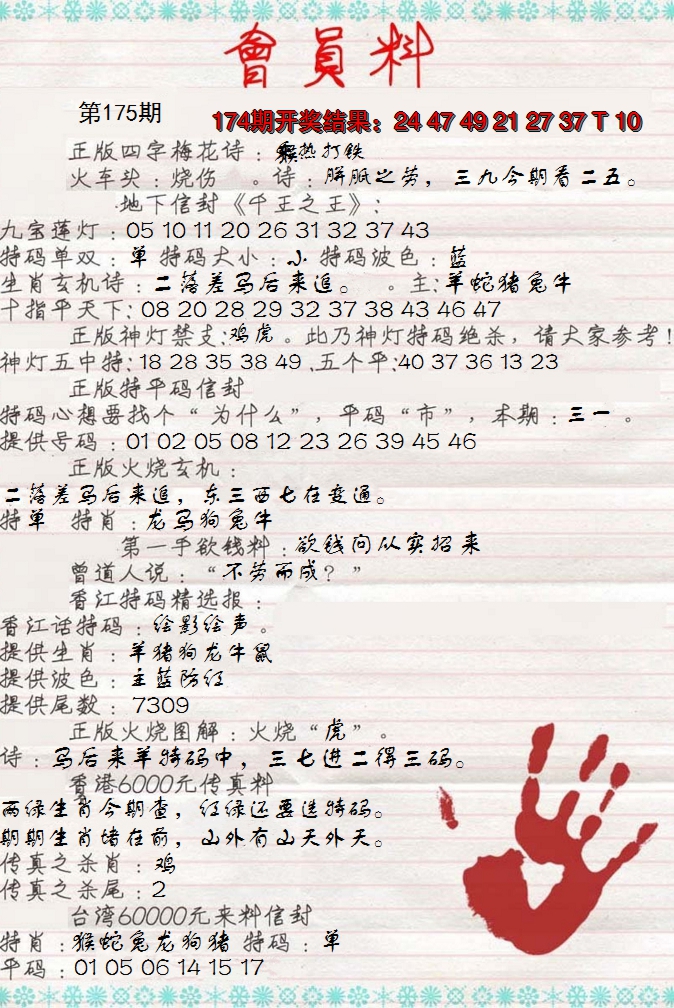 會員料
第175期
174期开奖结果：24 47 49 21 27 37 T 10
正版四字梅花诗：猴热打铁
火车头：烧伤 。诗：胼胝之劳，三九今期看二五。
地下信封《千王之王》：
九宝莲灯：05 10 11 20 26 31 32 37 43
特码单双：单 特码大小：小 特码波色：蓝
生肖玄机诗：二落差马后来追。 。主：羊蛇猪兔牛
十指平天下：08 20 28 29 32 37 38 43 46 47
正版神灯禁支：鸡虎。此乃神灯特码绝杀，请大家参考！
神灯五中特：18 28 35 38 49 .五个平：40 37 36 13 23
正版特平码信封
特码心想要找个“为什么”，平码“市”，本期：三一 。
提供号码：01 02 05 08 12 23 26 39 45 46
正版火烧玄机：
二落差马后来追，东三西七在变通。
特单 特肖：龙马狗兔牛
第一手欲钱料：欲钱问从实招来
曾道人说：“不劳而成？”
香江特码精选报：
香江话特码：绘影绘声。
提供生肖：羊猪狗龙牛鼠
提供波色：主蓝防红
提供尾数： 7309
正版火烧图解：火烧“虎”。
诗：马后来羊特码中，三七进二得三码。
香港6000元传真料
两绿生肖今期查，红绿还要选特码。
期期生肖堵在前，山外有山天外天。
传真之杀肖：鸡
传真之杀尾：2
台湾60000元来料信封
特肖：猴蛇兔龙狗猪 特码：单
平码：01 05 06 14 15 17